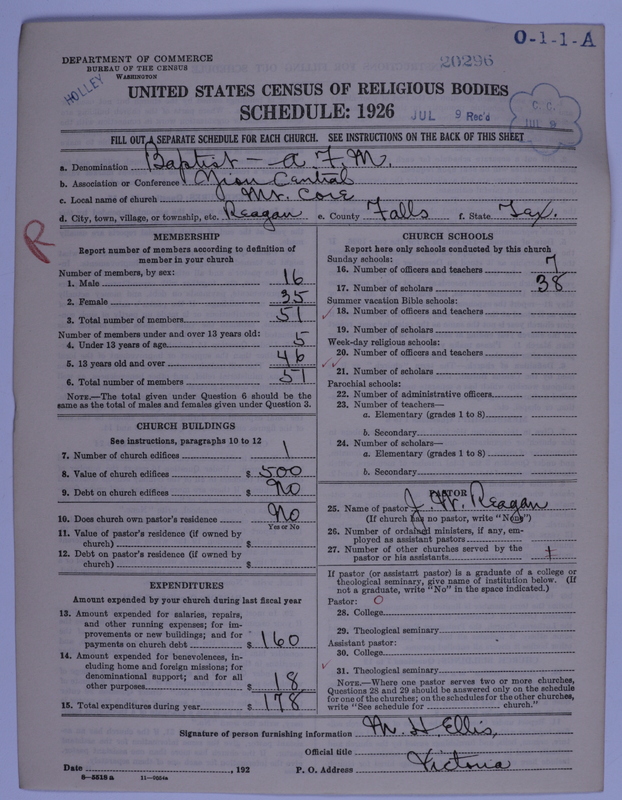 O-1-1-A
DEPARTMENT OF COMMERCE
BUREAU OF THE CENSUS
WASHINGTON
20296
HOLLEY
UNITED STATES CENSUS OF RELIGIOUS BODIES
SCHEDULE: 1926
JUL 9 Rec'd
C. C.
JUL 9
FILL OUT A SEPARATE SCHEDULE FOR EACH CHURCH. SEE INSTRUCTIONS ON THE BACK OF THIS SHEET
a. Denomination Baptist - A. F. M.
b. Association or Conference Zion Central
c. Local name of church Mt. Core
d. City, town, village, or township, etc. Reagan e. County Falls f. State Tex.
R
MEMBERSHIP
Report number of members according to definition of
member in your church
Number of members, by sex:
1. Male 16
2. Female 35
3. Total number of members 51
Number of members under and over 13 years old:
4. Under 13 years of age 5
5. 13 years old and over 46
6. Total number of members 51
NOTE.—The total given under Question 6 should be
same as the total of males and females given under Question 3.
CHURCH BUILDINGS
See instructions, paragraphs 10 to 12
7. Number of church edifices 1
8. Value of church edifices $ 500
9. Debt on church edifices $ No
10. Does church own pastor's residence No
Yes or No
11. Value of pastor's residence (if owned by
church) $
12. Debt on pastor's residence (if owned by
church) $
EXPENDITURES
Amount expended by your church during last fiscal year
13. Amount expended for salaries, repairs,
and other running expenses; for im-
provements or new buildings; and for
payments on church debt $ 160
14. Amount expended for benevolences, in-
cluding home and foreign missions; for
denominational support; and for all
other purposes $ 18
15. Total expenditures during year $ 178
CHURCH SCHOOLS
Report here only schools conducted by this church
Sunday schools:
16. Number of officers and teachers 7
17. Number of scholars 38
Summer vacation Bible schools:
18. Number of officers and teachers
19. Number of scholars
Week-day religious schools:
20. Number of officers and teachers
21. Number of scholars
Parochial schools:
22. Number of administrative officers
23. Number of teachers—
a. Elementary (grades 1 to 8)
b. Secondary
24. Number of scholars—
a. Elementary (grades 1 to 8)
b. Secondary
PASTOR
25. Name of pastor J. W. Reagan
(If church has no pastor, write "None")
26. Number of ordained ministers, if any, em-
ployed as assistant pastors
27. Number of other churches served by the
pastor or his assistants
If pastor (or assistant pastor) is a graduate of a college or
theological seminary, give name of institution below. (If
not a graduate, write "No" in the space indicated.)
Pastor: O
28. College
29. Theological seminary
Assistant pastor:
30. College
31. Theological seminary
NOTE.—Where one pastor serves two or more churches,
Questions 28 and 29 should be answered only on the schedule
for one of the churches; on the schedules for the other churches,
write "See schedule for church."
Signature of person furnishing information M. H. Ellis,
Official title
Date , 192 P. O. Address Victoria
8-5518 a